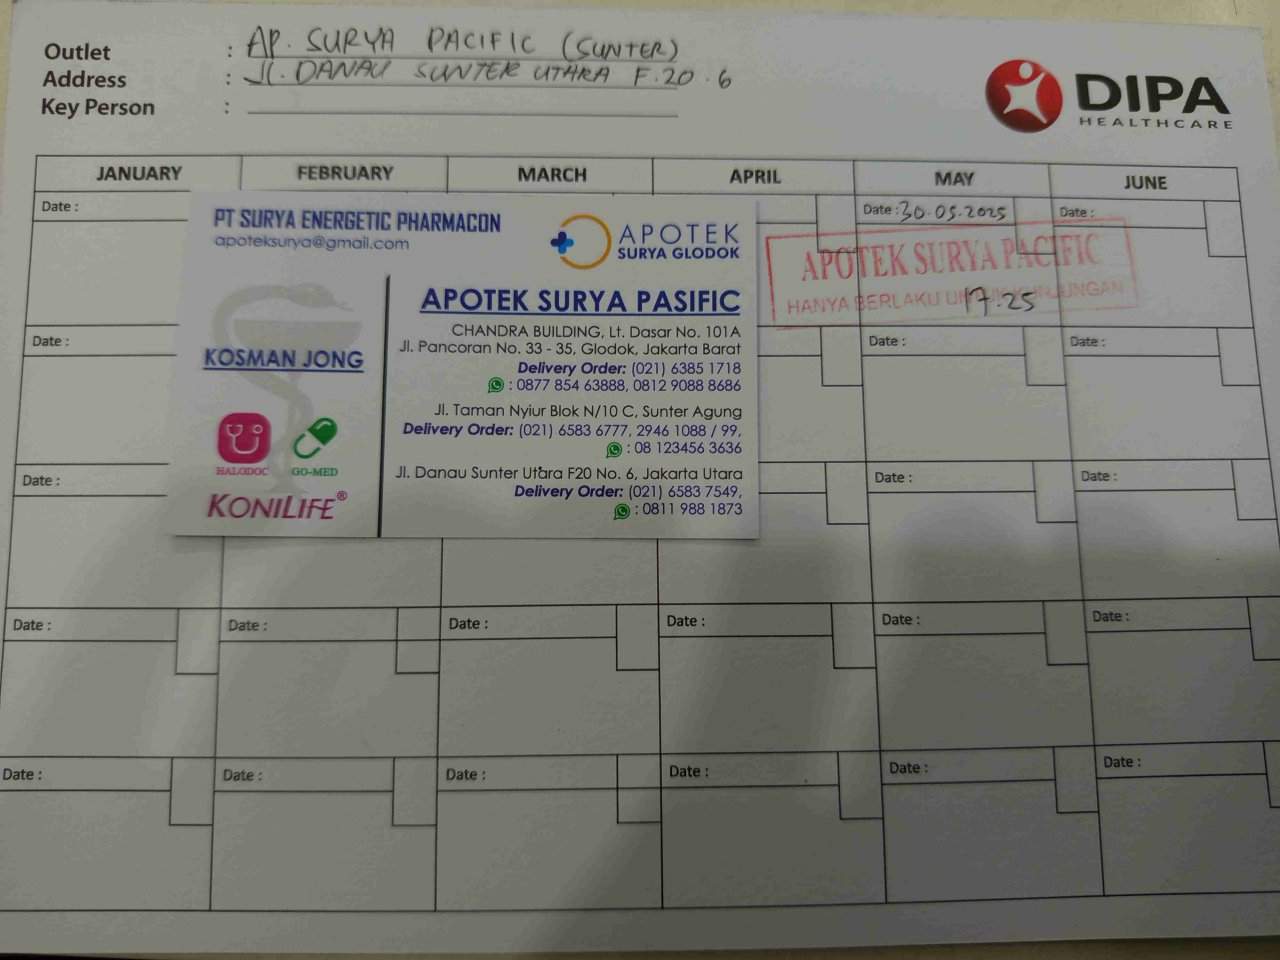 Outlet : AP. SURYA PACIFIC (SUNTER)
Address : Jl. DANAU SUNTER UTARA F.20.6
Key Person :
DIPA
HEALTHCARE
JANUARY FEBRUARY MARCH APRIL MAY JUNE
Date : Date : 30.05.2025 Date :
APOTEK SURYA PACIFIC
HANYA BERLAKU UNTUK KUNJUNGAN
17.25
PT SURYA ENERGETIC PHARMACON
apoteksurya@gmail.com
APOTEK
SURYA GLODOK
KOSMAN JONG
HALODOC GO-MED
KONILIFE®
APOTEK SURYA PASIFIC
CHANDRA BUILDING, Lt. Dasar No. 101A
Jl. Pancoran No. 33 - 35, Glodok, Jakarta Barat
Delivery Order: (021) 6385 1718
: 0877 854 63888, 0812 9088 8686
Jl. Taman Nyiur Blok N/10 C, Sunter Agung
Delivery Order: (021) 6583 6777, 2946 1088 / 99,
: 08 123456 3636
Jl. Danau Sunter Utara F20 No. 6, Jakarta Utara
Delivery Order: (021) 6583 7549,
: 0811 988 1873
Date : Date : Date :
Date : Date : Date :
Date : Date : Date : Date : Date : Date :
Date : Date : Date : Date : Date : Date :